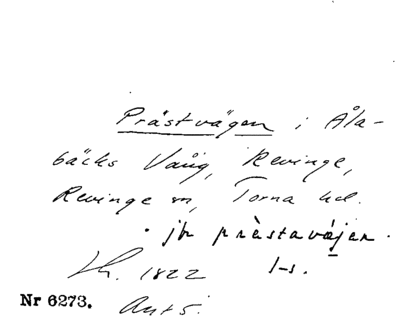 Prästvägen i Åla-
bäcks Vång, Revinge,
Revinge sn, Torna hd.
. jfr prästavä́jen .
1822 1-s.
Nr 6273. Ant 5.